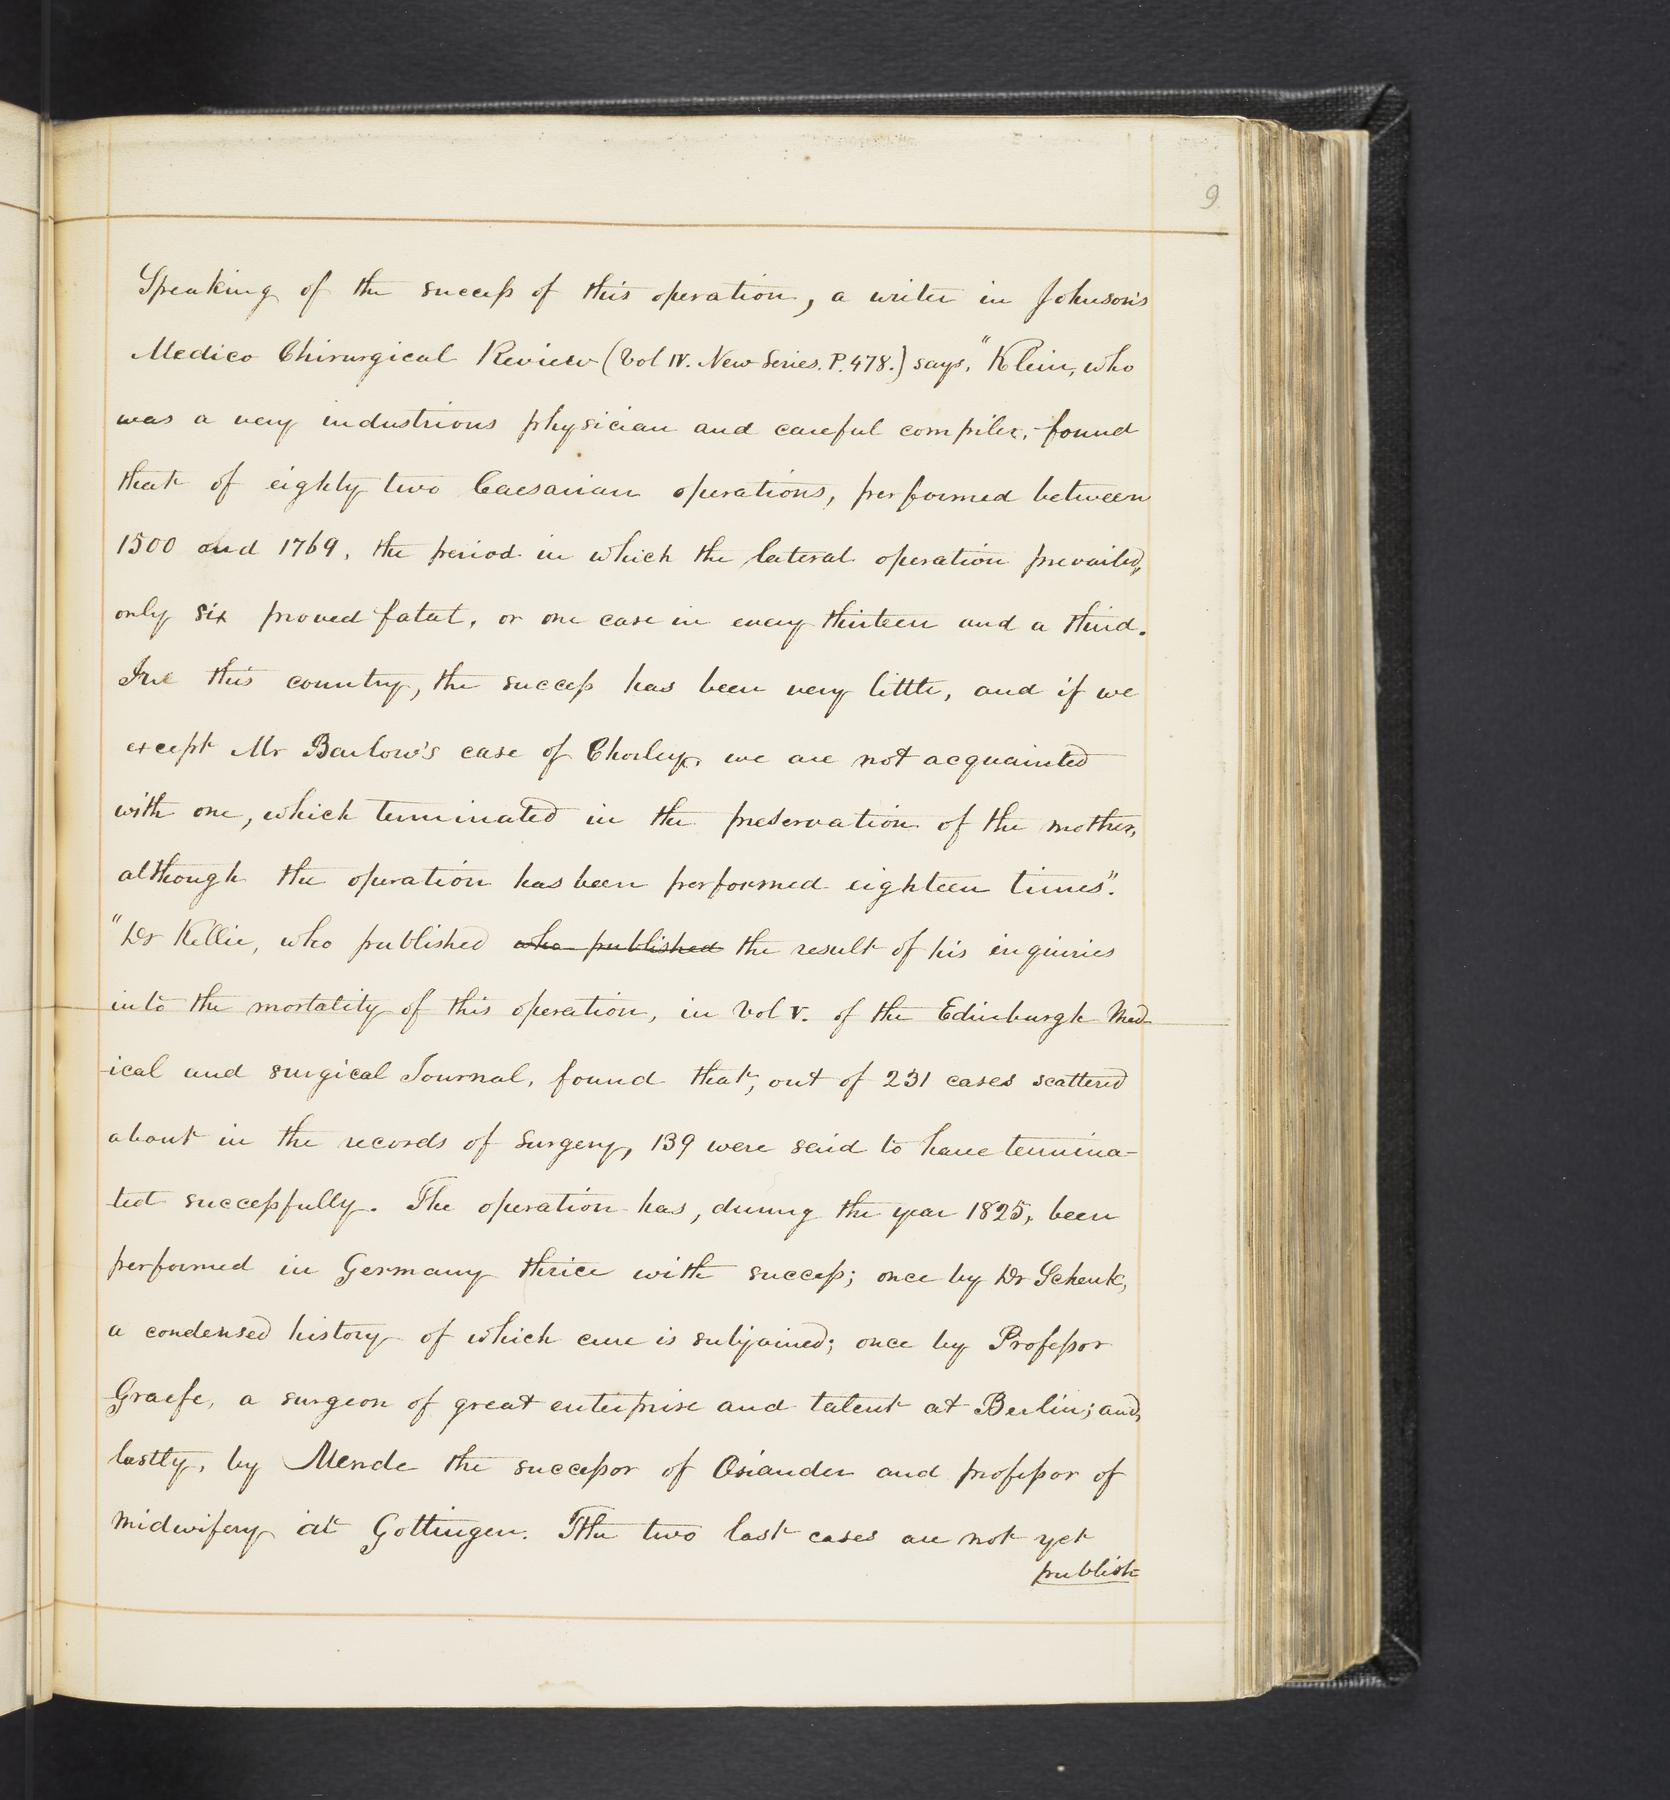 9
Speaking of the success of this operation, a writer in Johnson's
Medico Chirurgical Review (Vol IV. New Series. P. 478.) says, "Klein, who
was a very industrious physician and careful compiler, found
that of eighty two Caesarian operations, performed between
1500 and 1769, the period in which the lateral operation prevailed,
only six proved fatal, or one case in every thirteen and a third.
In this country, the success has been very little, and if we
except Mr Barlow's case of Chorley, we are not acquainted
with one, which terminated in the preservation of the mother,
although the operation has been performed eighteen times".
"Dr Kellie, who published who published the result of his inquiries
into the mortality of this operation, in Vol V. of the Edinburgh Med-
-ical and surgical Journal, found that, out of 231 cases scattered
about in the records of Surgery, 139 were said to have termina-
ted successfully. The operation has, during the year 1825, been
performed in Germany thrice with success; once by Dr Schenk,
a condensed history of which cure is subjoined; once by Professor
Graefe, a surgeon of great enterprise and talent at Berlin; and,
lastly, by Mende the successor of Osiander and professor of
midwifery at Gottingen. The two last cases are not yet
publish